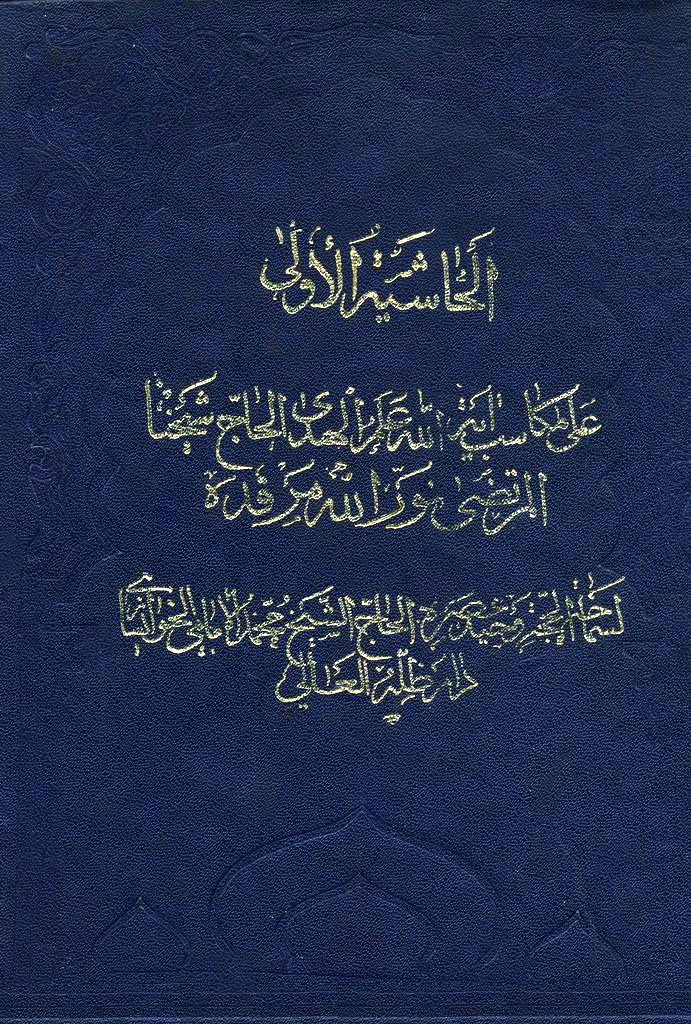 الحاشية الأولى
على مكاسب آية الله علم الهدى الحاج شيخنا
المرتضى نور الله مرقده
لسماحة الحجة وحيد عصره الحاج الشيخ محمد الإمامي الخوانساري
دام ظله العالي